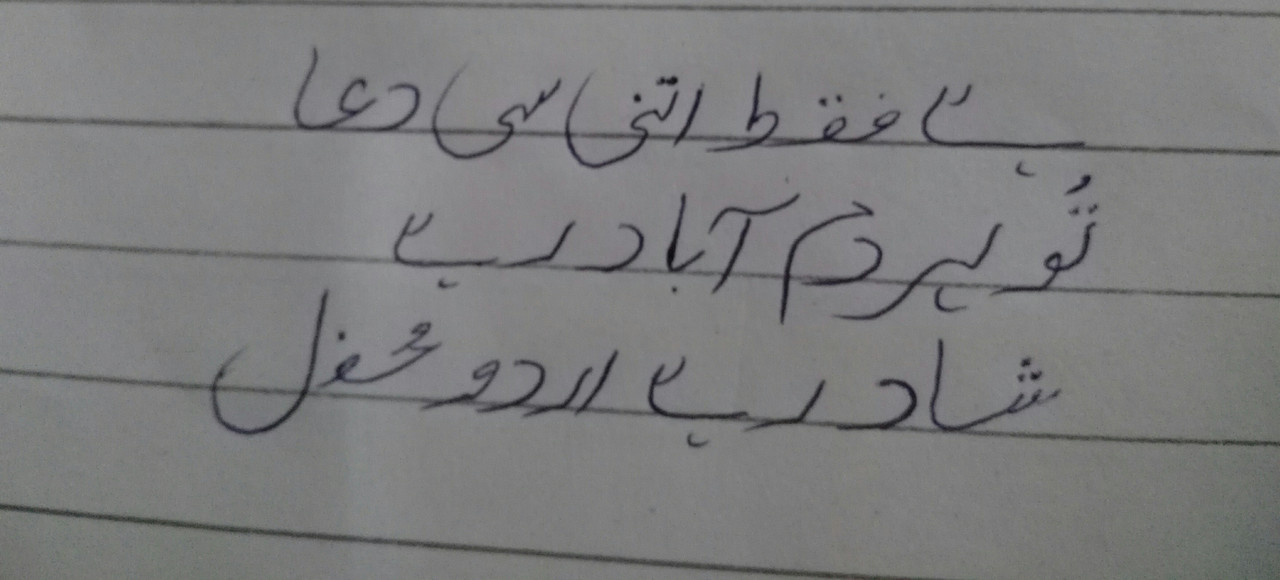 ہے فقط اتنی سی دعا
تُو ہر دم آباد رہے
شاد رہے اردو محفل